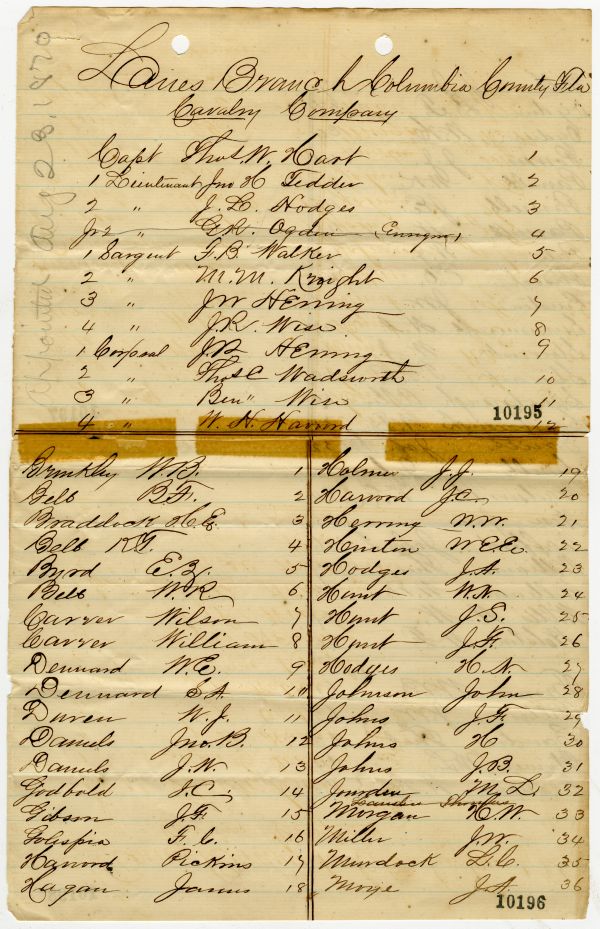 Lanes Branch Columbia County Fla
Cavalry Company
Capt Thos. W. Hart 1
1 Lieutenant Jno H Tedder 2
2 " J. L. Hodges 3
Jr 2 " G.R. Ogden (Ensign) 4
1 Sargent F. B. Walker 5
2 " M. M. Knight 6
3 " JW Herring 7
4 " J. R. Wise 8
1 Corpoal J.B Herring 9
2 " Thos C Wadsworth 10
3 " Benj Wise 11
10195
4 " W. H. Havord 12
Brinkley W B. 1
Bell B. F. 2
Braddock H. E. 3
Bell R F. 4
Byrd E. Z. 5
Bell W R 6
Carver Wilson 7
Carver William 8
Dennard W. E. 9
Dennard S A. 10
Duren W. J. 11
Daniels Jno. B. 12
Daniels J. W. 13
Godbold 14
Gibson J. F. 15
F. C. 16
Havord Pickins 17
Hagan James 18
Holmes J. J. 19
Harvord J. C. 20
Herring W. W. 21
Hinston 22
Hodges J. A. 23
Hunt W. N 24
Hunt J. S. 25
Hunt J. F. 26
Hodges H. N. 27
Johnson John 28
Johns J. F. 29
Johns H 30
Johns J. B. 31
M. L. 32
Morgan H. W. 33
Miller J. W. 34
Murdock L. C. 35
Moye J. A. 36
10196
Aug 28, 1870